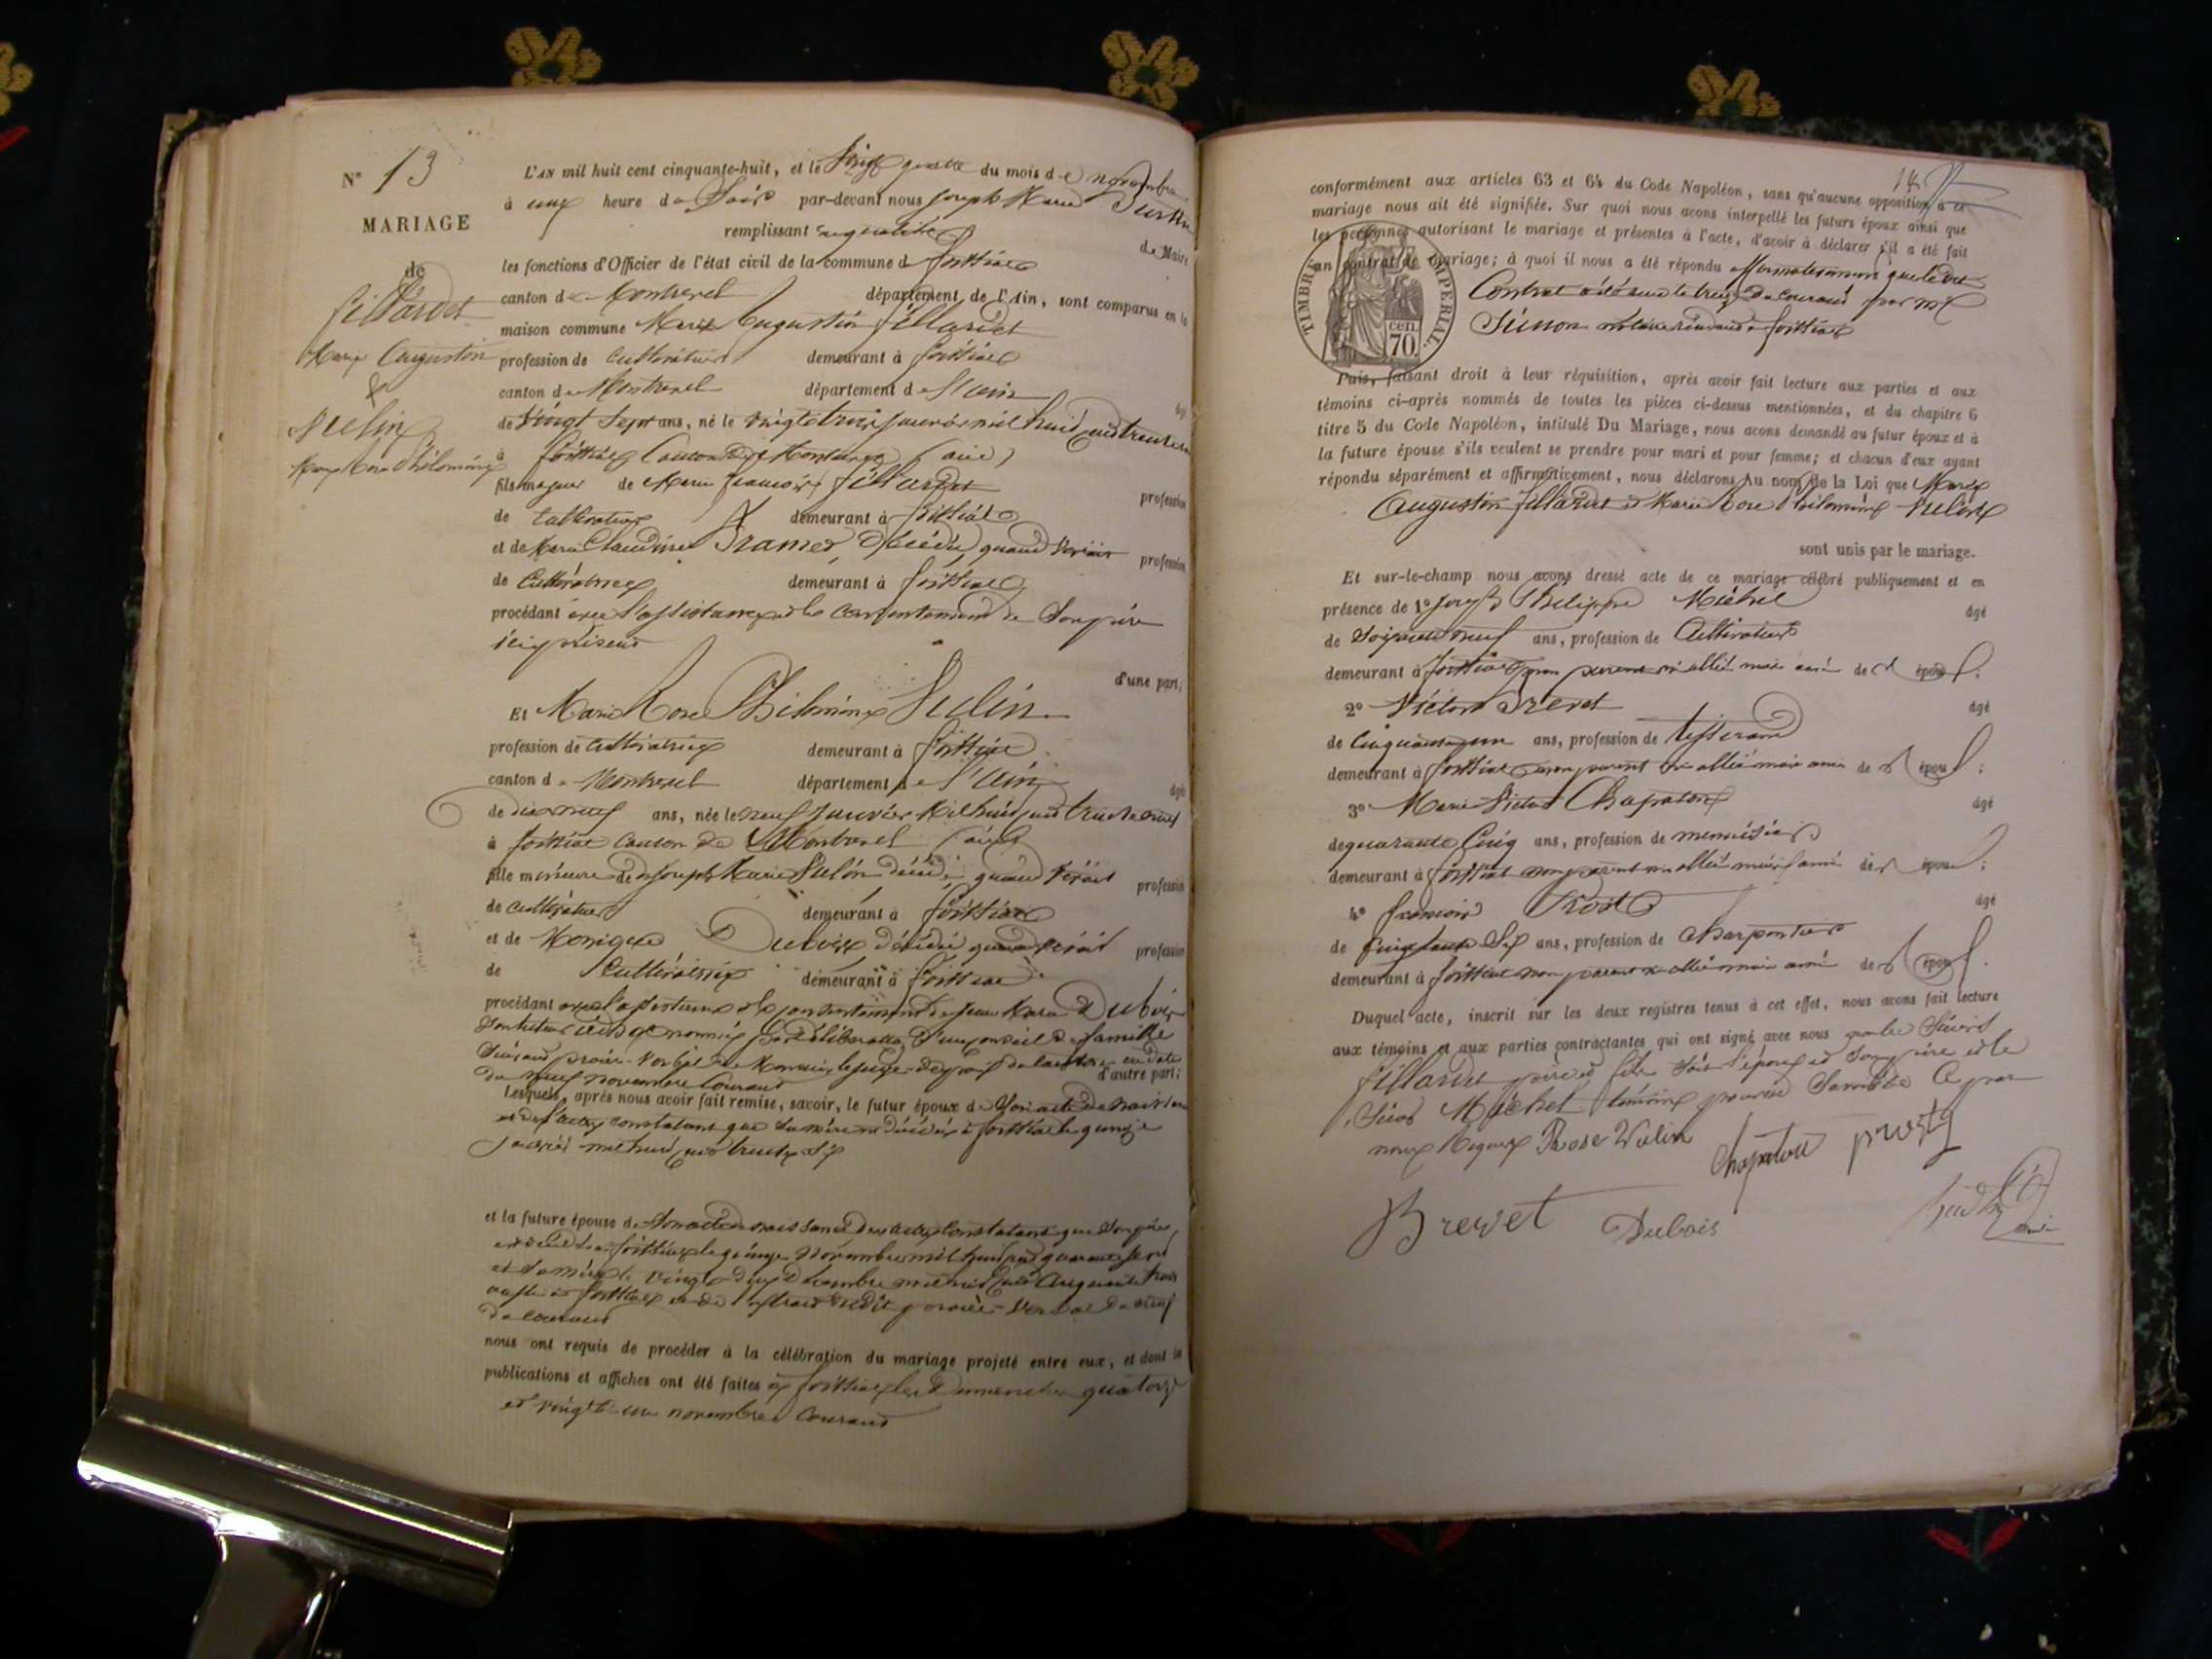 N° 13
MARIAGE
de
fillardet
Marie Augustin
&
Marie Rose Philomine
L'AN mil huit cent cinquante-huit, et le vingt quatre du mois de novembre
à une heure du Soir par-devant nous Joseph Marie
remplissant en qualité de Maire
les fonctions d'Officier de l'état civil de la commune de foissiat
canton de Montrevel département de l'Ain, sont comparus en la
maison commune Marie Augustin fillardet
profession de Cultivateur demeurant à foissiat
canton de Montrevel département de l'ain âgé
de Vingt Sept ans, né le vingt trois janvier mil huit cent trente
à foissiat Canton de (ain)
fils majeur de Marie francois fillardet profession
de Cultivateur demeurant à foissiat
et de Marie Claudine décédée quand vivait profession
de Cultivatrice demeurant à foissiat
procédant avec l'assistance et le consentement de Son père
ici présent
d'une part;
Et Marie Rose Philomine Vulin
profession de cultivatrice demeurant à foissiat
canton de Montrevel département de l'ain âgée
de dix neuf ans, née le neuf janvier Mil huit cent trente neuf
à foissiat canton de Montrevel (ain)
fille mineure de Joseph Marie Vulin décédé quand vivait profession
de cultivateur demeurant à foissiat
et de Monique Dubois décédée quand vivait profession
de Cultivatrice demeurant à foissiat
procédant avec l'assistance et le consentement de Jean Marie Dubois
Son tuteur nommé par délibération d'un conseil de famille
Suivant procès-verbal de Monsieur le juge de paix du canton en date
du neuf novembre Courant d'autre part;
Lesquels, après nous avoir fait remise, savoir, le futur époux de Son acte de naissance
et de l'acte constatant que Sa mère est décédée à foissiat le quinze
janvier mil huit cent trente Six
et la future épouse de Son acte de naissance des actes Constatant que Son père
est décédé à foissiat le quinze Novembre mil huit cent quarante sept
et Sa mère le vingt deux Décembre mil huit cent Cinquante trois
aussi à foissiat et de l'extrait dudit procès-verbal du neuf
du courant
nous ont requis de procéder à la célébration du mariage projeté entre eux, et dont les
publications et affiches ont été faites à foissiat les Dimanches quatorze
et vingt un novembre Courant
14
conformément aux articles 63 et 64 du Code Napoléon, sans qu'aucune opposition à ce
mariage nous ait été signifiée. Sur quoi nous avons interpellé les futurs époux ainsi que
les personnes autorisant le mariage et présentes à l'acte, d'avoir à déclarer s'il a été fait
un contrat de mariage; à quoi il nous a été répondu affirmativement que ledit
Contrat a été reçu le treize du courant par Me
notaire résidant à foissiat
TIMBRE IMPERIAL.
cen.
70.
Puis, faisant droit à leur réquisition, après avoir fait lecture aux parties et aux
témoins ci-après nommés de toutes les pièces ci-dessus mentionnées, et du chapitre 6
titre 5 du Code Napoléon, intitulé Du Mariage, nous avons demandé au futur époux et à
la future épouse s'ils veulent se prendre pour mari et pour femme; et chacun d'eux ayant
répondu séparément et affirmativement, nous déclarons Au nom de la Loi que Marie
Augustin fillardet et Marie Rose Philomine Vulin
sont unis par le mariage.
Et sur-le-champ nous avons dressé acte de ce mariage célébré publiquement et en
présence de 1° Joseph Philippe Michel âgé
de Soixante neuf ans, profession de Cultivateur
demeurant à foissiat non parent ni allié mais ami des époux.
2° Victor Brevet âgé
de Cinquante un ans, profession de tisserand
demeurant à foissiat non parent ni allié mais ami des époux;
3° Marie Victor Chapaton âgé
de quarante Cinq ans, profession de menuisier
demeurant à foissiat non parent ni allié mais ami des époux;
4° francois Prost âgé
de Cinquante Six ans, profession de Charpentier
demeurant à foissiat non parent ni allié mais ami des époux.
Duquel acte, inscrit sur les deux registres tenus à cet effet, nous avons fait lecture
aux témoins et aux parties contractantes qui ont signé avec nous
fillardet père et fils soit l'époux et Son père et le
Sieur Michel témoin pour ne Savoir de Ce par
nous Requis Rose Vulin Chapaton prost
Brevet Dubois